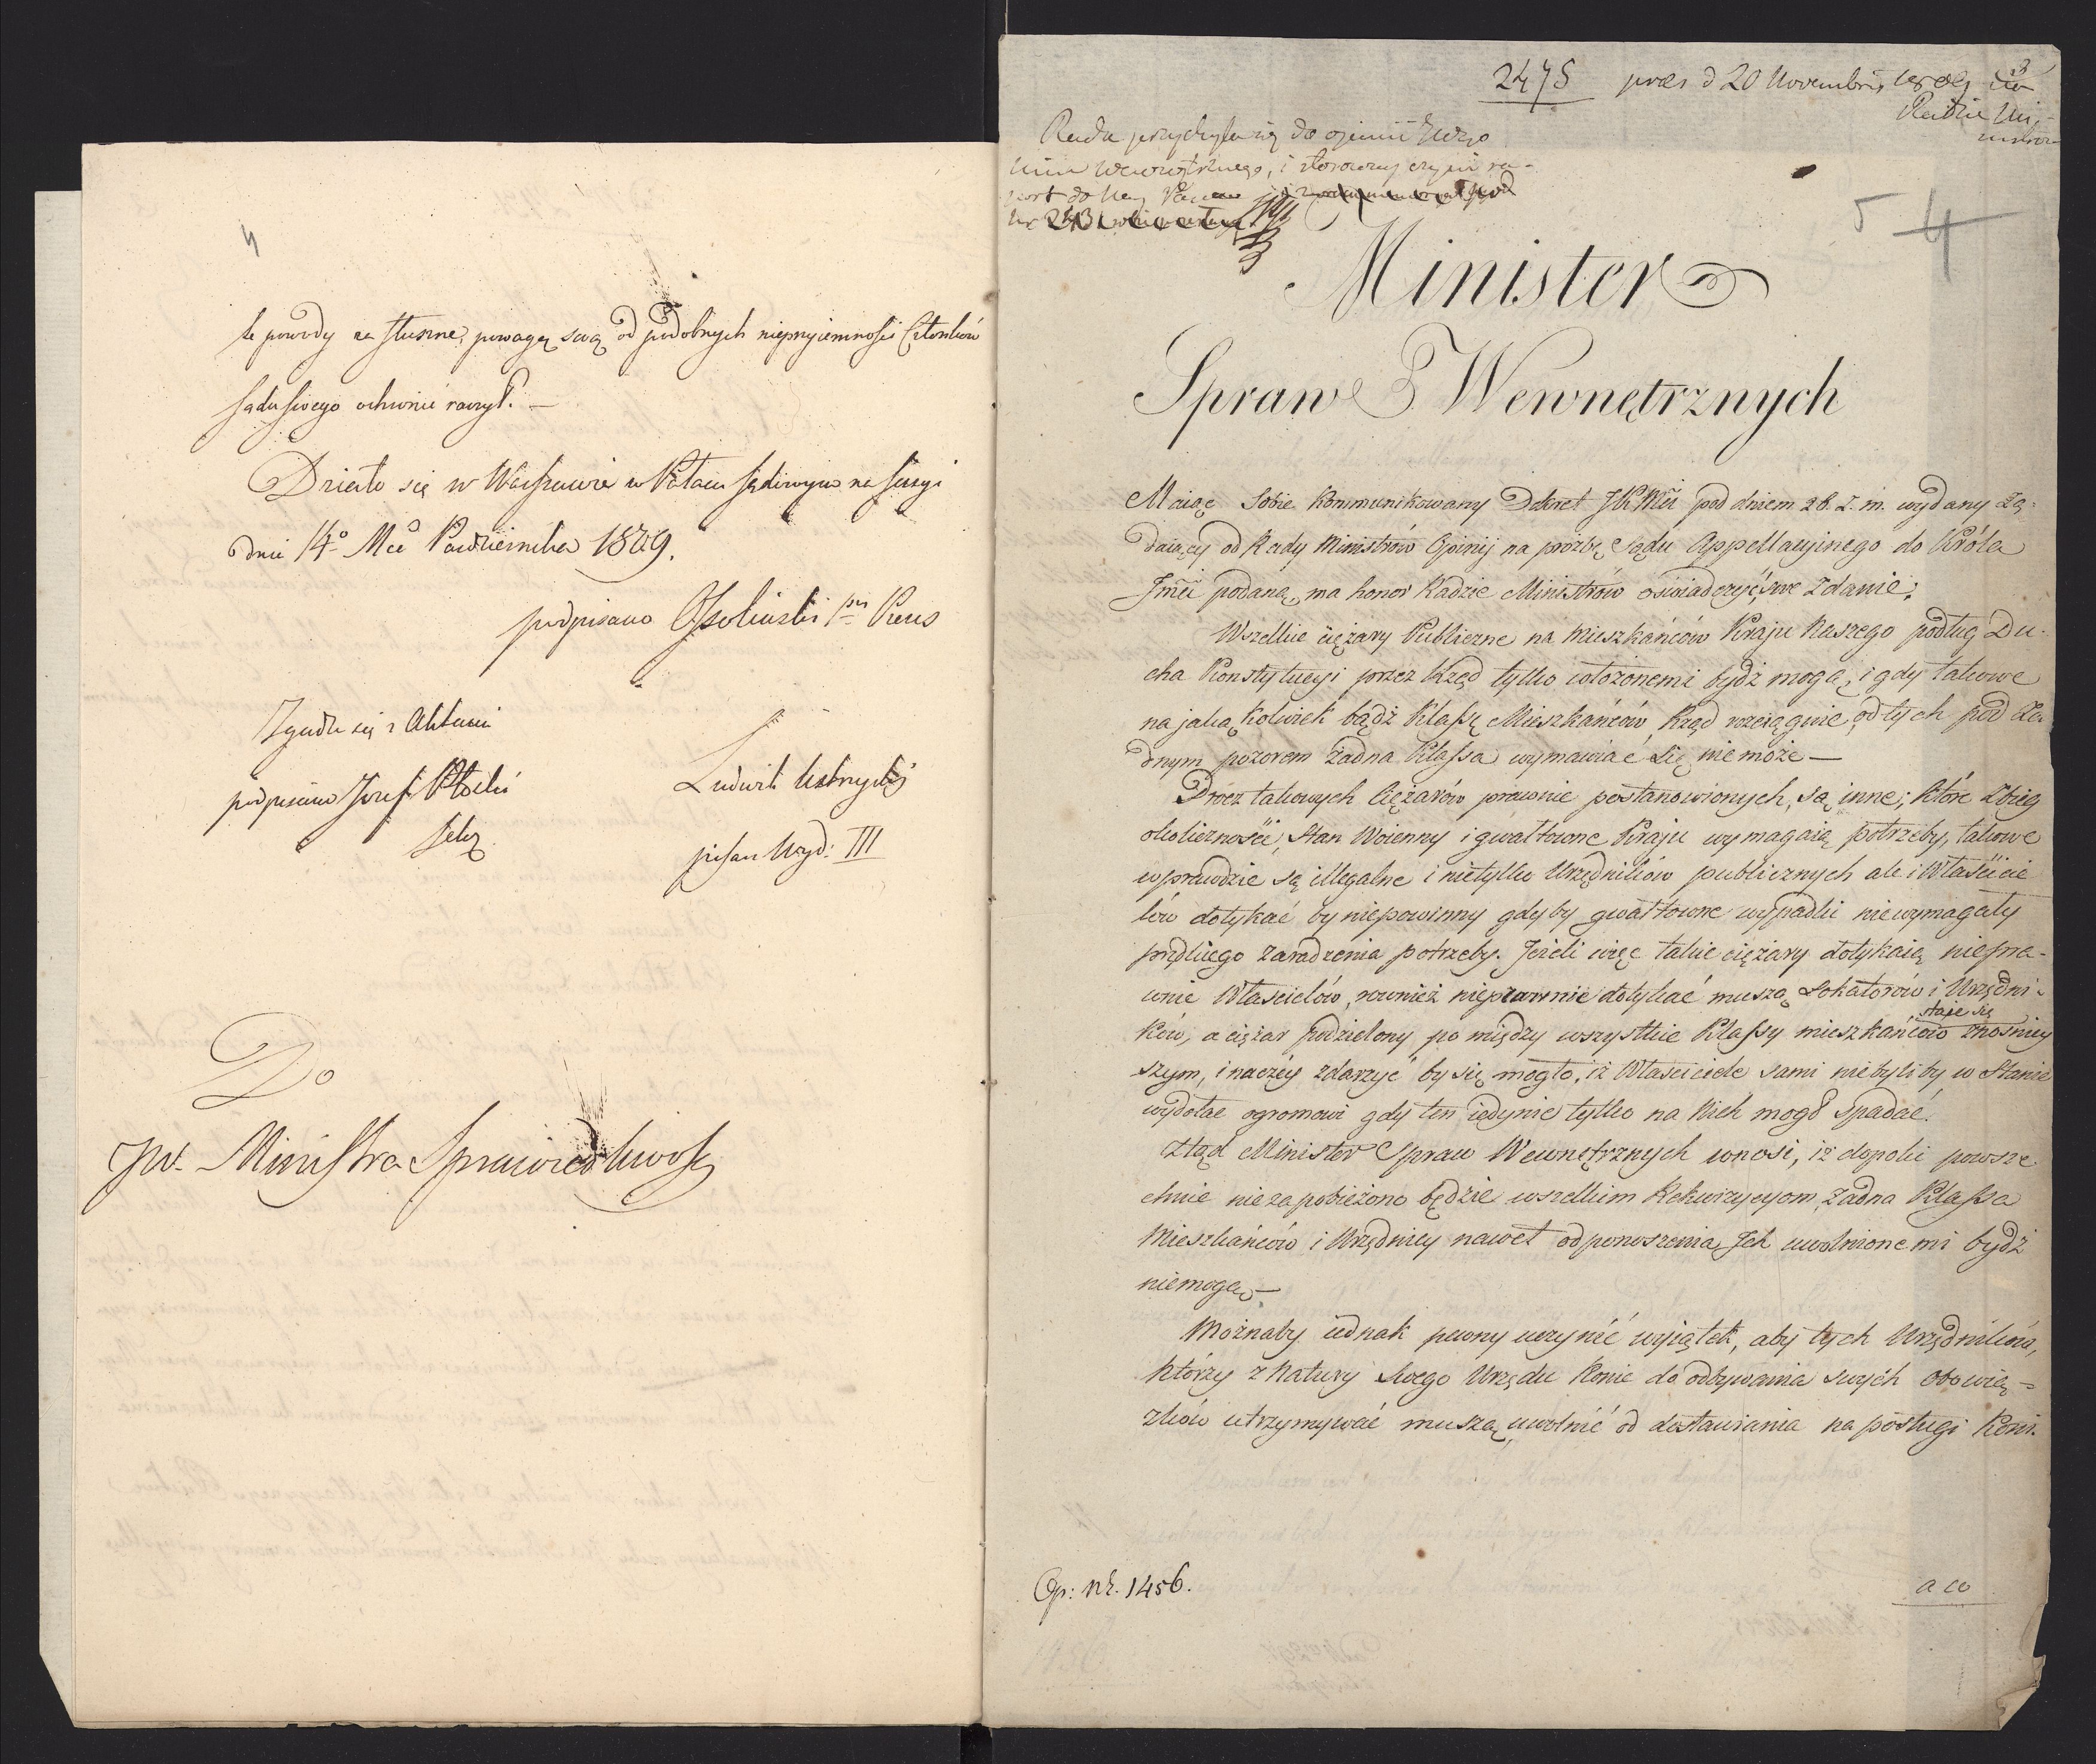 4
te powody za słuszne, powagą swą od podobnych nieprzyiemności Członków
Sądu swego ochronić raczył. —
Działo się w Warszawie w Pałacu Sądowym na Sessyi
dnia 14º Mca Października 1809.
podpisano Ossoliński Prezes
Zgodno się z Aktami
podpisano Józef
Sekr.
Ludwik
pisarz Wyd: III
Do
JW. Ministra Sprawiedliwości
2475 praes d 20 Novembris 1809
Radzie Mi-
nistrów
Rada przychyla się do opinii
Wewnętrznego, i stosowny czyni ra-
port do
5 4
Minister
Spraw Wewnętrznych
Maiąc Sobie Kommunikowany Dekret JKMci pod dniem 28. z. m. wydany żą-
daiący od Rady Ministrów Opinij na prozbę Sądu Appellacyinego do Króla
Jmci podaną, ma honor Radzie Ministrów oświadczyć swe Zdanie:
Wszelkie ciężary Publiczne na Mieszkańców Kraju Naszego podług Du-
cha Konstytucyi przez Rząd tylko włożonemi bydź mogą, i gdy takowe
na jaką kolwiek bądź Klassę Mieszkańców Rząd rozciągnie, od tych pod ża-
dnym pozorem żadna Klassa wymawiać się nie może —
Procz takowych Ciężarów prawnie postanowionych, są inne; które zbieg
okoliczności, Stan Woienny i gwałtowne Kraju wymagaią potrzeby, takowe
wprawdzie są illegalne i nietylko Urzędników publicznych ale i Właścicie
lów dotykać by niepowinny gdyby gwałtowne wypadki niewymagały
prędkiego zaradzenia potrzeby. Jeżeli więc takie ciężary dotykaią niepra-
wnie Właścielów, rownież nieprawnie dotykać muszą Lokatorów i Urzędni-
staje się
ków, a ciężar podzielony po między wszystkie Klassy mieszkańców znośniey
szym, inaczéy zdarzyć by się mogło, iż Właściciele sami niebyliby w Stanie
wydołać ogromowi gdy ten iedynie tylko na Nich mogł spadać.
Ztąd Minister Spraw Wewnętrznych wnosi, iż dopoki powsze
chnie nie zapobieżono będzie wszelkim Rekwizycyom, żadna Klassa
Mieszkańców i Urzędnicy nawet od ponoszenia Ich uwolnionemi bydź
niemogą. —
Możnaby iednak pewny uczynić wyiątek, aby tych Urzędników,
którzy z Natury swego Urzędu Konie do odbywania swych obowią=
zków utrzymywać muszą, uwolnić od dostawiania na posługi Koni.
Op: Nr. 1456.
a co